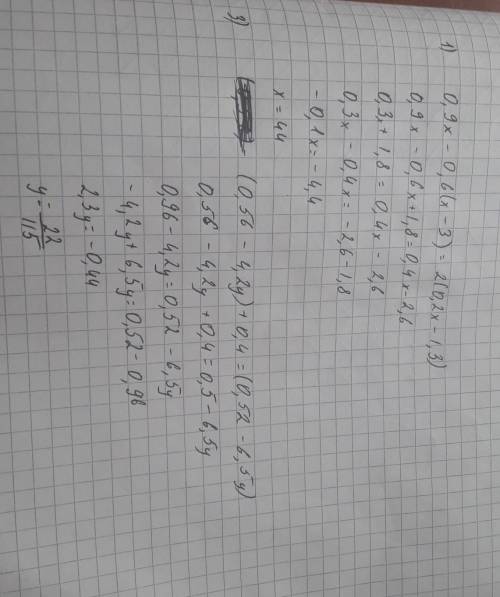 1) 0,9x - 0,6(x - 3) = 2(0,2x - 1,3)
0,9x - 0,6x + 1,8 = 0,4x - 2,6
0,3x + 1,8 = 0,4x - 2,6
0,3x - 0,4x = -2,6 - 1,8
-0,1x = -4,4
x = 44
2) (0,56 - 4,2y) + 0,4 = (0,52 - 6,5y)
0,56 - 4,2y + 0,4 = 0,5 - 6,5y
0,96 - 4,2y = 0,52 - 6,5y
-4,2y + 6,5y = 0,52 - 0,96
2,3y = -0,44
y = - 22/115